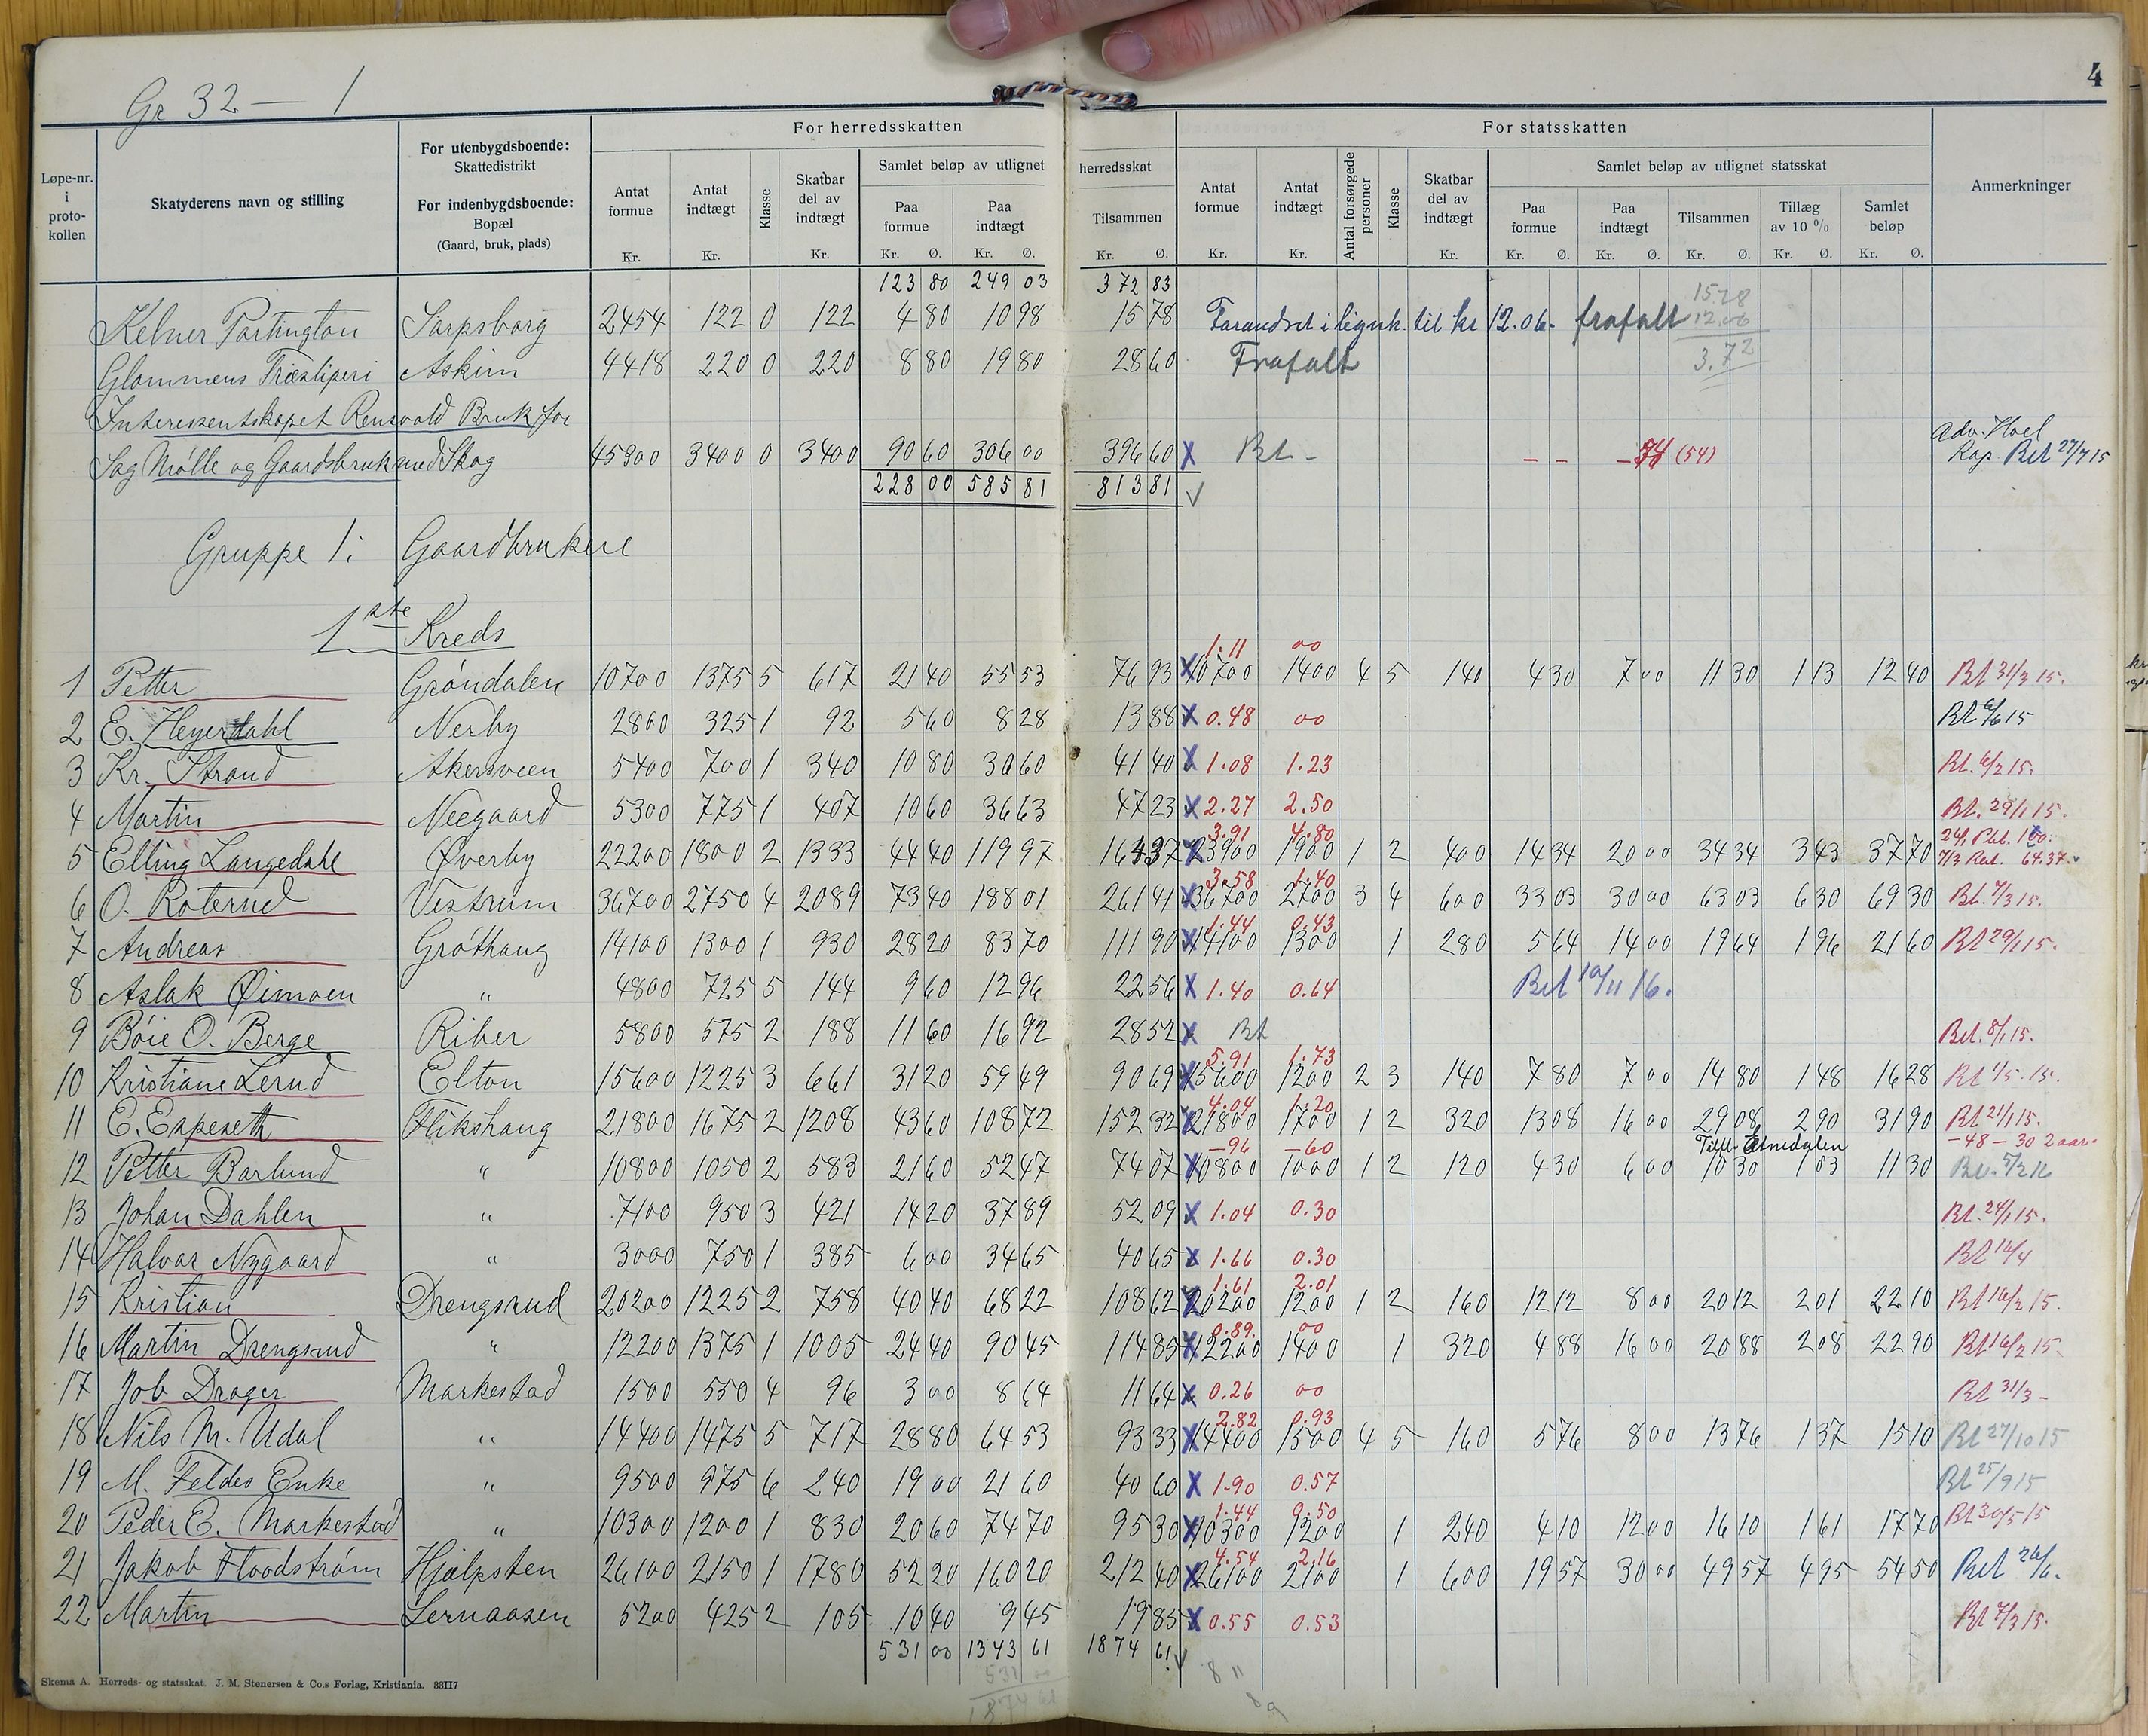 4
Gr 32 — 1
Løpe-nr. i proto-kollen
Skatyderens navn og stilling
For utenbygdsboende: Skattedistrikt
For indenbygdsboende: Bopæl (Gaard, bruk, plads)
For herredsskatten
Antat formue Kr.
Antat indtægt Kr.
Klasse
Skatbar del av indtægt Kr.
Samlet beløp av utlignet herredsskat
Paa formue Kr. Ø.
Paa indtægt Kr. Ø.
Tilsammen Kr. Ø.
For statsskatten
Antat formue Kr.
Antat indtægt Kr.
Antal forsørgede personer
Klasse
Skatbar del av indtægt Kr.
Samlet beløp av utlignet statsskat
Paa formue Kr. Ø.
Paa indtægt Kr. Ø.
Tilsammen Kr. Ø.
Tillæg av 10 % Kr. Ø.
Samlet beløp Kr. Ø.
Anmerkninger
123 80 249 03 372 83
15.78
12.06
3.72
Kelner Partington Sarpsborg 2454 122 0 122 4 80 10 98 15 78 Forandret i lignk. til kr 12.06- frafalt
Glommens Træsliperi Askim 4418 220 0 220 8 80 19 80 28 60 Frafalt
Interessentskapet Rensvold Bruk for
Sag Mølle og Gaardsbruk med Skog 45300 3400 0 3400 90 60 306 00 396 60 X Bet - – – – 74 (54) Adv. Hoel Kap. Bet 27/7 15
228 00 585 81 813 81 √
Gruppe 1: Gaardbrukere
1ste Kreds
1.11 00
1 Petter Grøndalen 10700 1375 5 617 21 40 55 53 76 93 X 10700 1400 4 5 140 4 30 7 00 11 30 1 13 12 40 Bet 31/3 15.
2 E. Heyerdahl Nerby 2800 325 1 92 5 60 8 28 13 88 X 0.48 00 Bet 6/6 15
3 Kr. Strand Akersveen 5400 700 1 340 10 80 30 60 41 40 X 1.08 1.23 Bet. 6/2 15.
4 Martin Neegaard 5300 775 1 407 10 60 36 63 47 23 X 2.27 2.50 Bet. 29/1 15.
3.91 4.80
5 Elling Langedahl Øverby 22200 1800 2 1333 44 40 119 97 164 37 X 23900 1900 1 2 400 14 34 20 00 34 34 3 43 37 70 7/3 Bet. 64.37.
3.58 1.40
6 O. Roterud Vestrum 36700 2750 4 2089 73 40 188 01 261 41 X 36700 2700 3 4 600 33 03 30 00 63 03 6 30 69 30 Bet. 4/3 15.
1.44 0.43
7 Andreas Grøthaug 14100 1300 1 930 28 20 83 70 111 90 X 14100 1300 1 280 5 64 14 00 19 64 1 96 21 60 Bet 29/1 15.
8 Aslak Øimoen " 4800 725 5 144 9 60 12 96 22 56 X 1.40 0.64 Bet 10/11 16.
9 Bøie O. Berge Riber 5800 575 2 188 11 60 16 92 28 52 X Bet Bet. 8/1 15.
5.91 1.73
10 Kristiane Lerud Elton 15600 1225 3 661 31 20 59 49 90 69 X 15600 1200 2 3 140 7 80 7 00 14 80 1 48 16 28 Bet 1/5. 15.
4.04 1.20
11 E. Espeseth Flikshaug 21800 1675 2 1208 43 60 108 72 152 32 X 21800 1700 1 2 320 13 08 16 00 29 08 2 90 31 90 Bet 21/1 15.
–96 –60 Tilfl. Etnedalen –48 – 30 2 aar.
12 Petter Barlund " 10800 1050 2 583 21 60 52 47 74 07 X 10800 1000 1 2 120 4 30 6 00 10 30 1 03 11 30
13 Johan Dahlen " 7100 950 3 421 14 20 37 89 52 09 X 1.04 0.30 Bet. 24/1 15.
14 Halvar Nygaard " 3000 750 1 385 6 00 34 65 40 65 X 1.66 0.30 Bet 12/4
1.61 2.01
15 Kristian Drengsrud 20200 1225 2 758 40 40 68 22 108 62 X 20200 1200 1 2 160 12 12 8 00 20 12 2 01 22 10 Bet 16/2 15.
0.89. 00
16 Martin Drengsrud " 12200 1375 1 1005 24 40 90 45 114 85 X 12200 1400 1 320 4 88 16 00 20 88 2 08 22 90 Bet 16/2 15.
17 Job Drager Markestad 1500 550 4 96 3 00 8 64 11 64 X 0.26 00 Bet 31/3 -
2.82 0.93
18 Nils M. Udal " 14400 1475 5 717 28 80 64 53 93 33 X 14400 1500 4 5 160 5 76 8 00 13 76 1 37 15 10 Bet 27/10 15
19 M. Feldes Enke " 9500 975 6 240 19 00 21 60 40 60 X 1.90 0.57 Bet 25/9 15
1.44 0.50
20 Peder E. Markestad " 10300 1200 1 830 20 60 74 70 95 30 X 10300 1200 1 240 4 10 12 00 16 10 1 61 17 70 Bet 30/5 15
4.54 2.16
21 Jakob Floodstrøm Hjælpsten 26100 2150 1 1780 52 20 160 20 212 40 X 26100 2100 1 600 19 57 30 00 49 57 4 95 54 50 Bet 26/6.
22 Martin Lernaasen 5200 425 2 105 10 40 9 45 19 85 X 0.55 0.53 Bet 7/3 15.
531 00 1343 61 1874 61 √
531 00
1874 61
Skema A. Herreds- og statsskat. J. M. Stenersen & Co.s Forlag, Kristiania. 33117